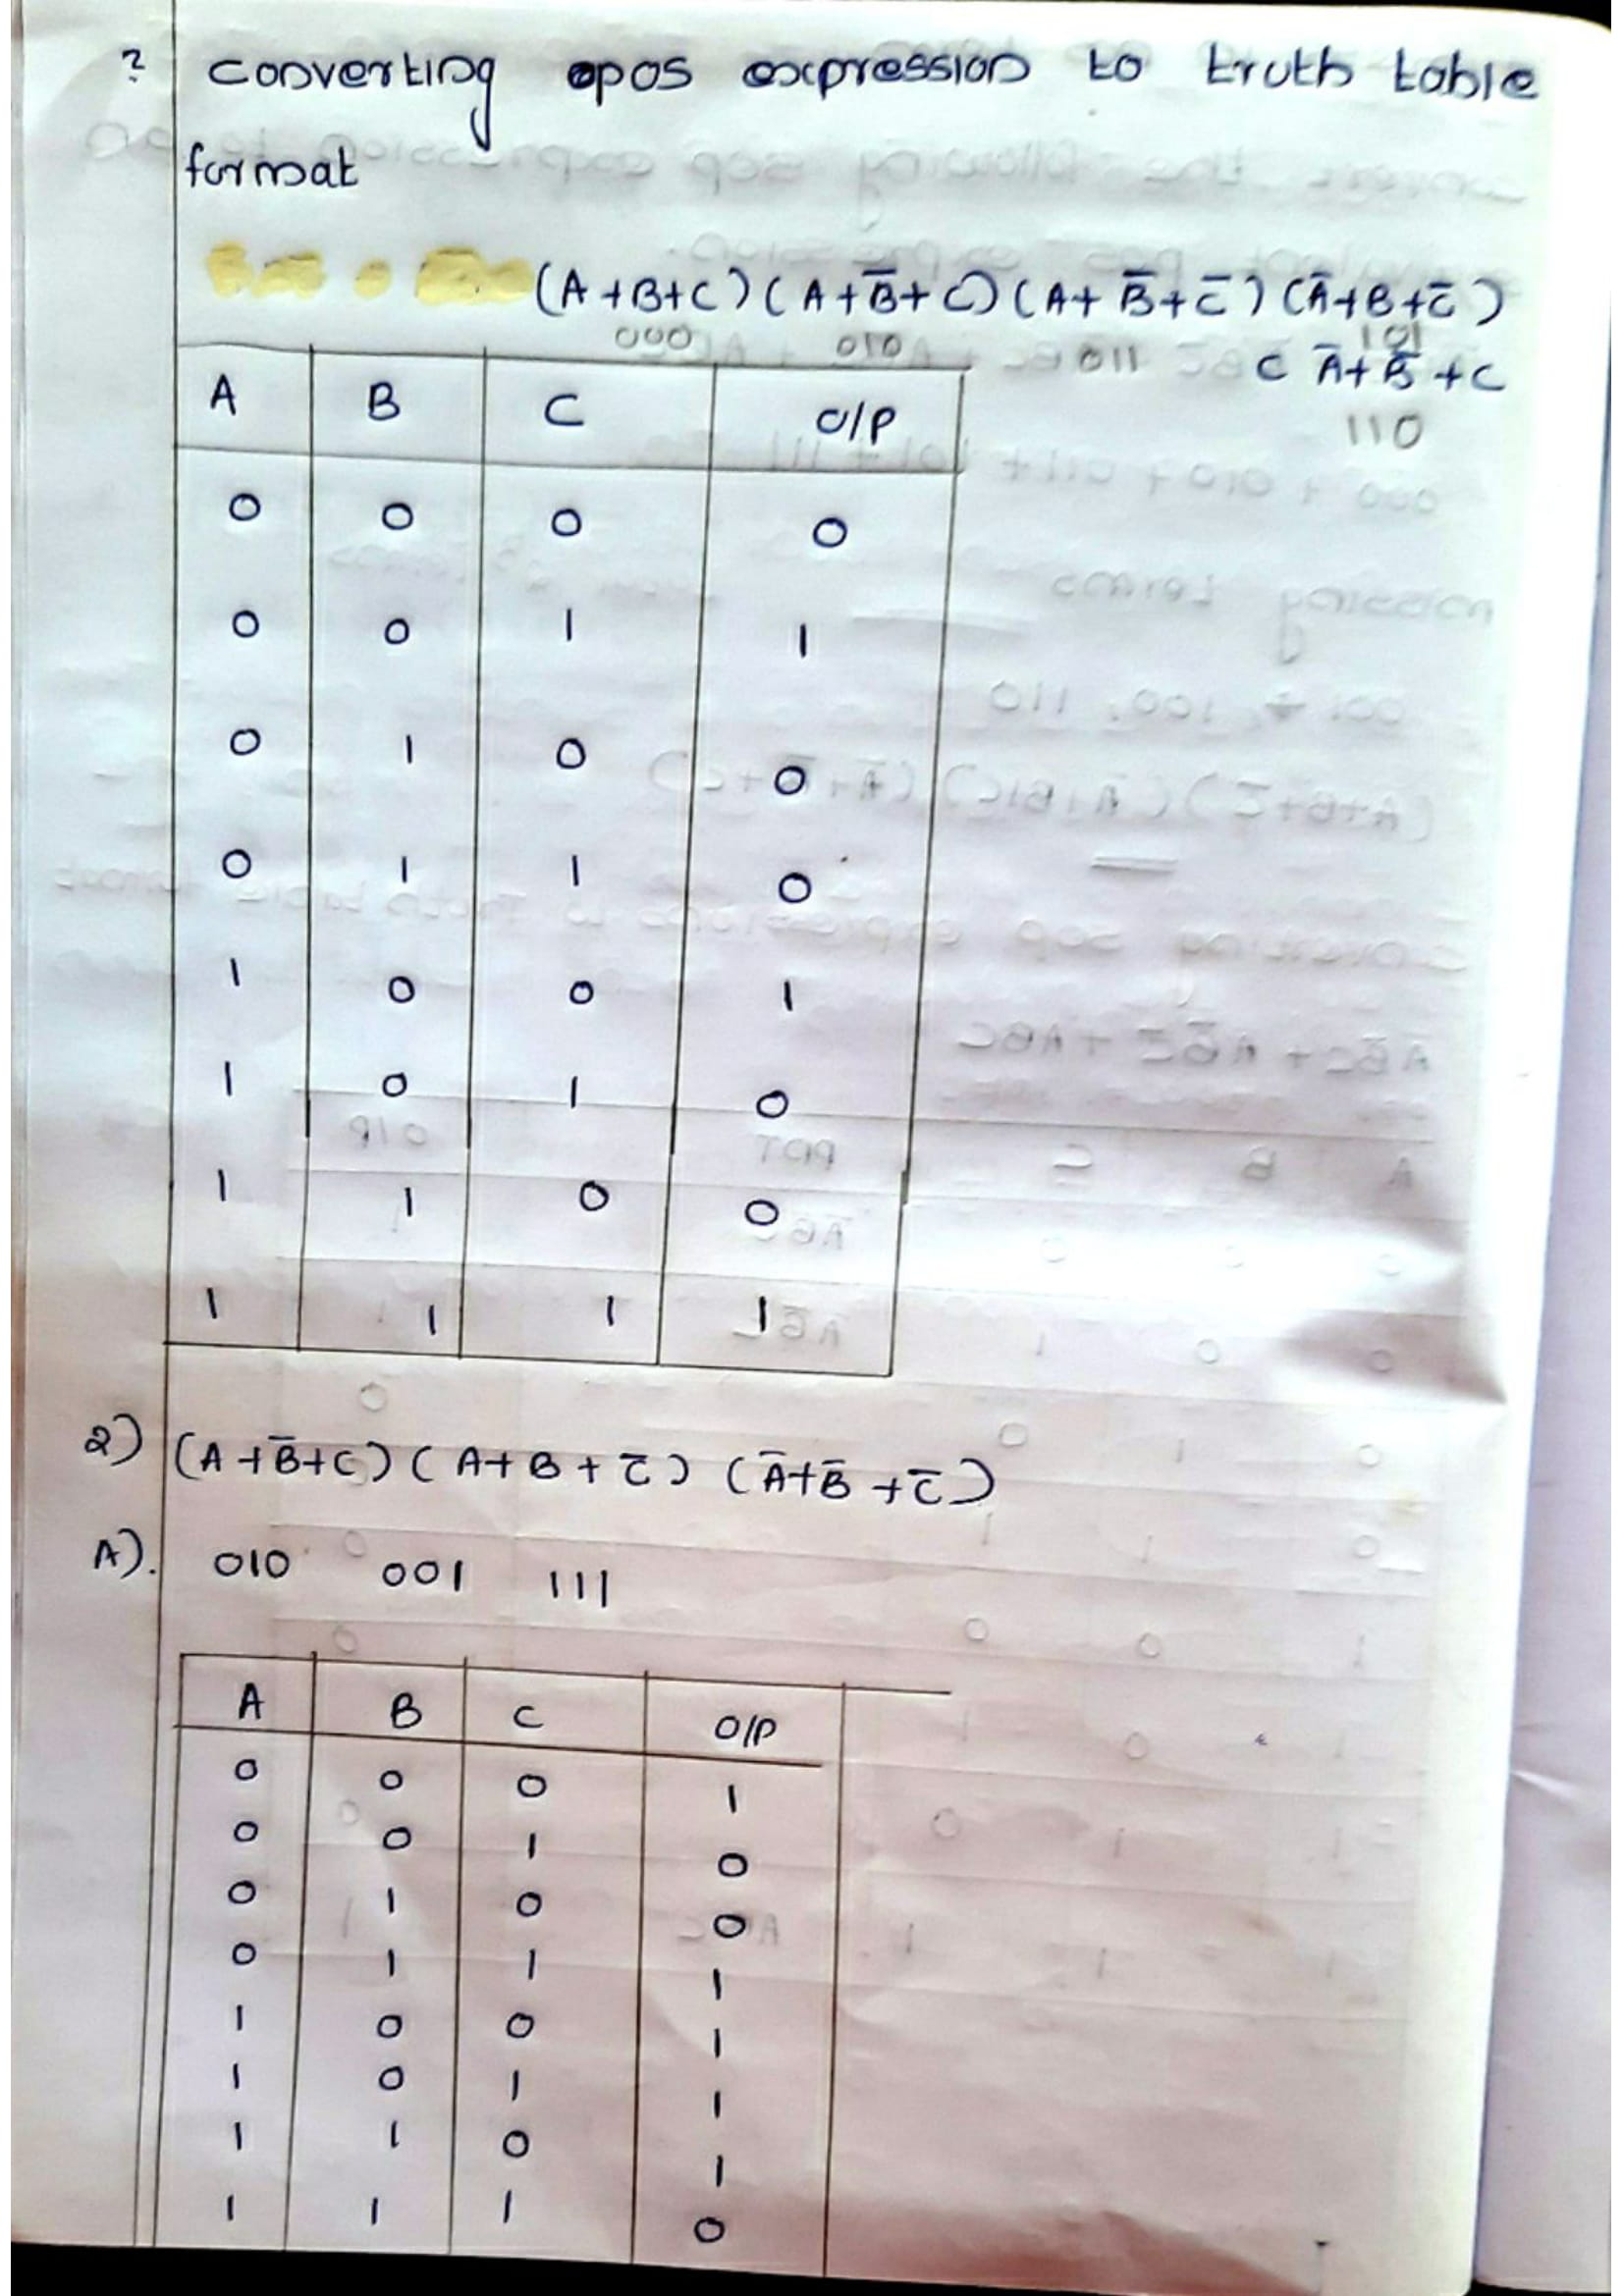 ? converting pos expression to truth table
format
(A+B+C)(A+B̅+C)(A+B̅+C̅)(A̅+B+C̅)
000 010 011 101
( A̅+B̅+C
110
A B C O/P
0 0 0 0
0 0 1 1
0 1 0 0
0 1 1 0
1 0 0 1
1 0 1 0
1 1 0 0
1 1 1 1
2) (A+B̅+C)(A+B+C̅) (A̅+B̅+C̅)
A). 010 001 111
A B C O/P
0 0 0 1
0 0 1 0
0 1 0 0
0 1 1 1
1 0 0 1
1 0 1 1
1 1 0 1
1 1 1 0